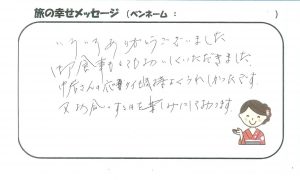 旅の幸せメッセージ（ペンネーム：　）
いろいろありがとうございました
お食事がとてもおいしくいただきました。
仲居さんの応対も気持よくうれしかったです。
又お会いするのを楽しみにしております。